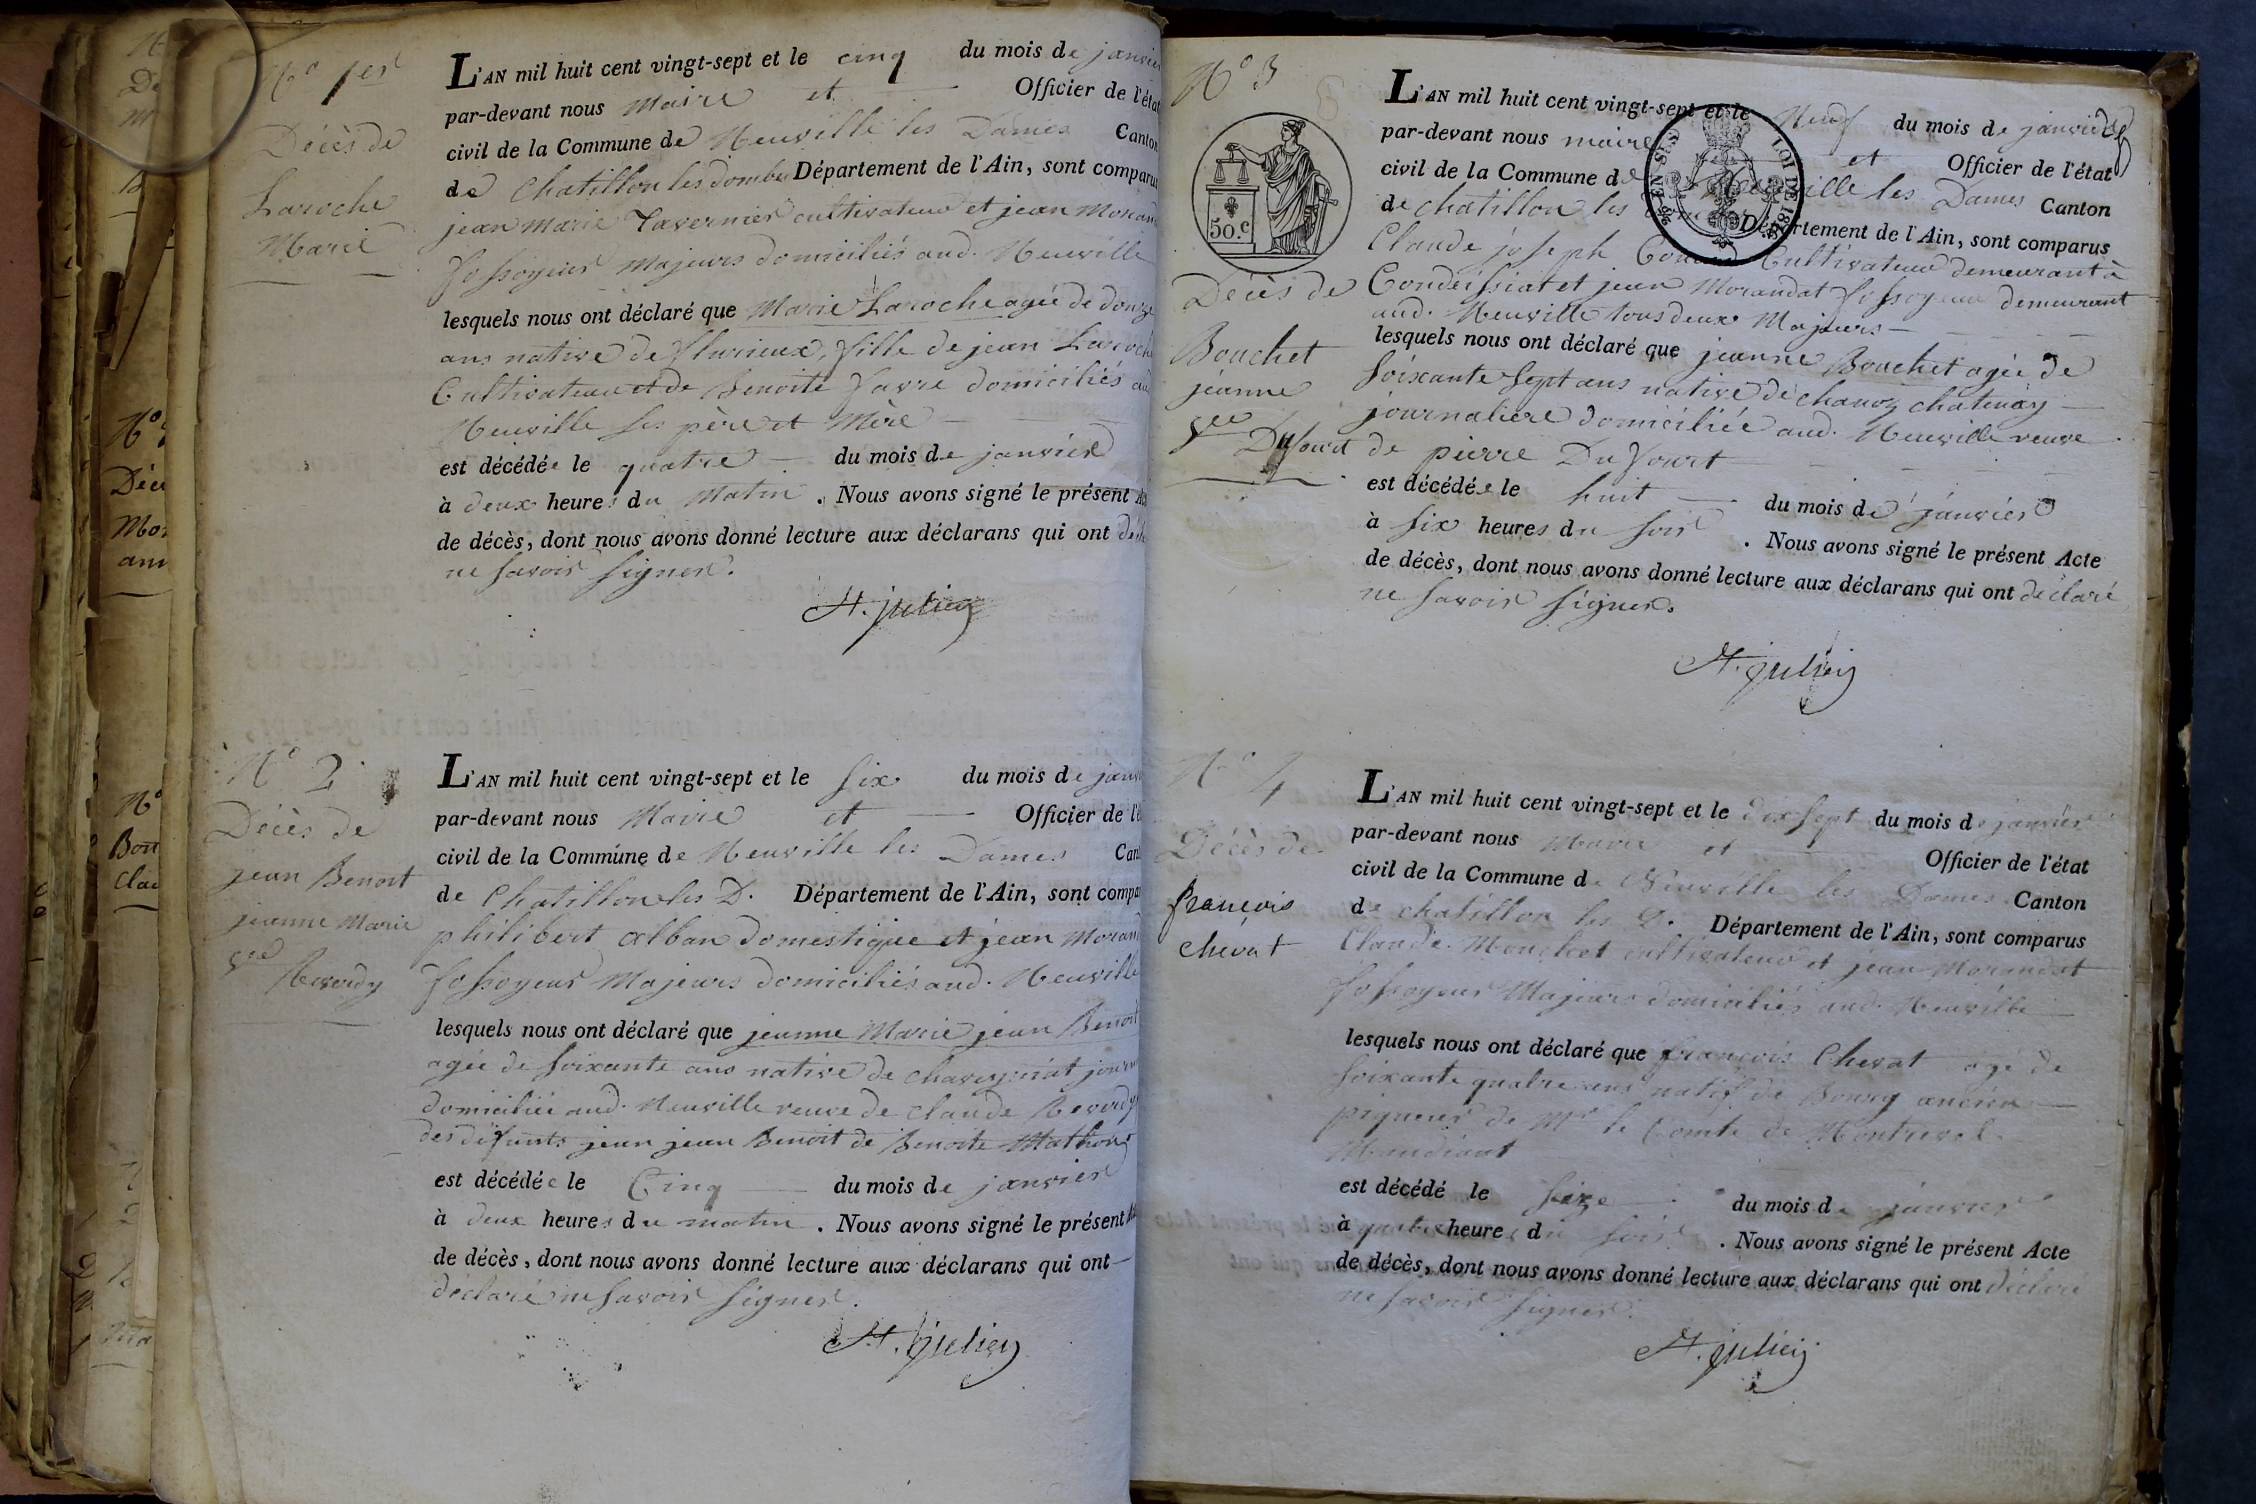 N° 1er
Décès de
Laroche
Marie
L'AN mil huit cent vingt-sept et le cinq du mois de janvier
par-devant nous Maire et Officier de l'état
civil de la Commune de Neuville les Dames Canton
de Chatillon les dombes Département de l'Ain, sont comparus
jean Marie Tavernier cultivateur et jean Morand
fossoyeur Majeurs domiciliés aud. Neuville
lesquels nous ont déclaré que Marie Laroche agée de douze
ans native de flurieux, fille de jean Laroche
Cultivateur et de Benoite favre domiciliés aud
Neuville ses père et Mère
est décédée le quatre du mois de janvier
à deux heures du Matin. Nous avons signé le présent Acte
de décès, dont nous avons donné lecture aux déclarans qui ont décla
ne savoir signer.
St. julien
N° 2
Décès de
jean Benoit
jeanne Marie
vve
Reverdy
L'AN mil huit cent vingt-sept et le six du mois de janv
par-devant nous Maire et Officier de l'é
civil de la Commune de Neuville les Dames Cant
de Chatillon les D. Département de l'Ain, sont compar
philibert alban domestique et jean Morand
fossoyeur Majeurs domiciliés aud. Neuville
lesquels nous ont déclaré que jeanne Marie jean Benoit
agée de soixante ans native de journ
domiciliée aud. Neuville veuve de claude Reverdy
des défunts jean jean Benoit de Benoite Mathon
est décédée le Cinq du mois de janvier
à deux heures du matin. Nous avons signé le présent Acte
de décès, dont nous avons donné lecture aux déclarans qui ont
déclaré ne savoir signer.
St. julien
N° 3
50.c
Décès de
Bouchet
jeanne
vve
Dufourt
L'AN mil huit cent vingt-sept et le Neuf du mois de janvier
par-devant nous maire et Officier de l'état
civil de la Commune de Neuville les Dames Canton
de chatillon les Département de l'Ain, sont comparus
Claude joseph Cultivateur demeurant à
Condeissiat et jean Morandat fossoyeur demeurant
aud. Neuville tous deux Majeurs
lesquels nous ont déclaré que jeanne Bouchet agée de
soixante sept ans native de chanoz chatenay
journaliere domiciliée aud. Neuville veuve
de pierre Dufourt
est décédée le huit du mois de janvier
à six heures du soir. Nous avons signé le présent Acte
de décès, dont nous avons donné lecture aux déclarans qui ont déclaré
ne savoir signer.
St. julien
N° 4
Décès de
françois
Chevat
L'AN mil huit cent vingt-sept et le dix sept du mois de janvier
par-devant nous Maire et Officier de l'état
civil de la Commune de Neuville les Dames Canton
de chatillon les D. Département de l'Ain, sont comparus
Claude Mouchet cultivateur et jean Morandat
fossoyeur Majeurs domiciliés aud. Neuville
lesquels nous ont déclaré que françois Chevat agé de
soixante quatre ans natif de Bourg ancien
piqueur de Mr le Comte de Montrevel
Mendiant
est décédé le seize du mois de janvier
à quatre heures du soir. Nous avons signé le présent Acte
de décès, dont nous avons donné lecture aux déclarans qui ont déclaré
ne savoir signer.
St. julien